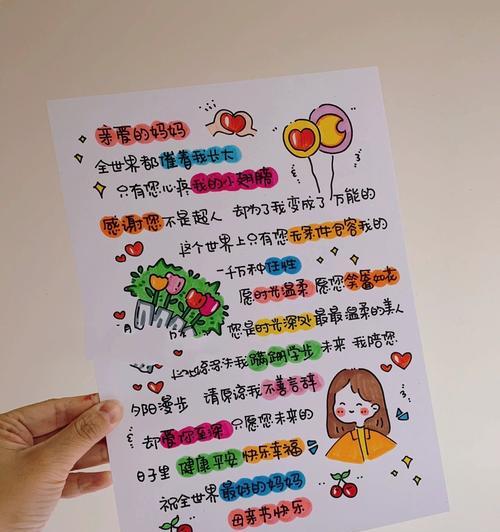 亲爱的妈妈
全世界都催着我长大
只有您心疼我的小翅膀
感谢您不是超人 却为了我变成了万能的
这个世界上只有您无条件包容我的
一千万种任性
愿时光温柔 愿您笑靥如花
您是时光深处最最温柔的美人
我蹒跚学步 未来 我陪您
夕阳漫步 请原谅我不善言辞
却爱你至深 只愿您未来的
日子里 健康平安 快乐幸福
祝全世界最好的妈妈
母亲节快乐